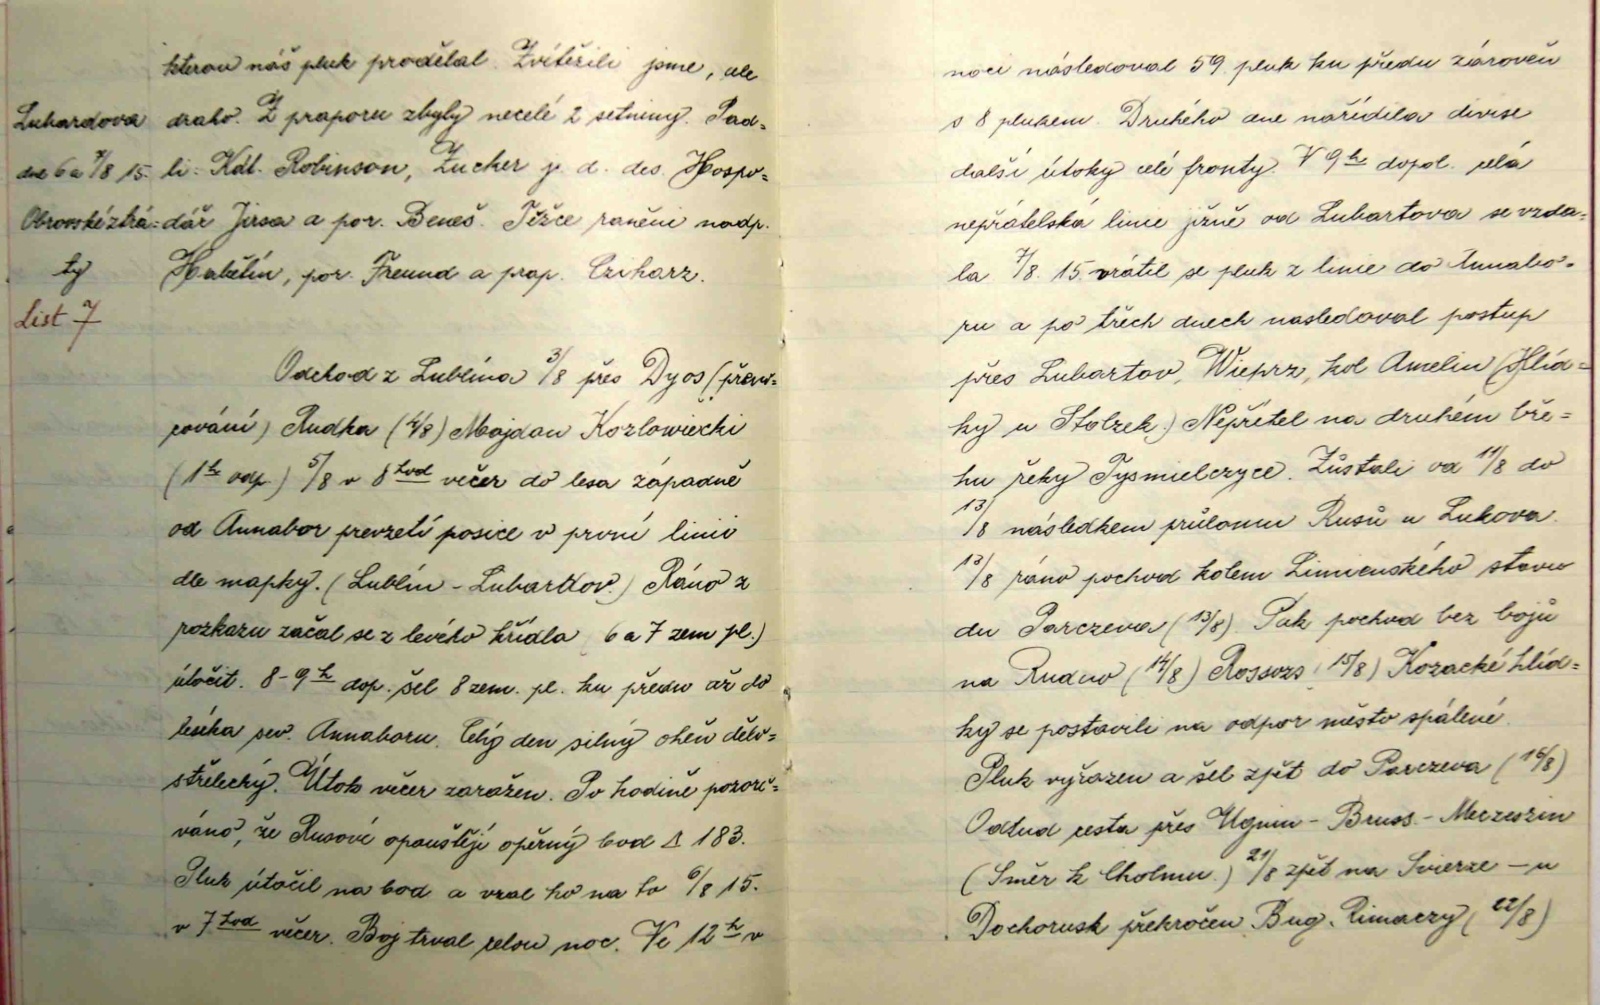 kterou náš pluk prodělal. Zvítěžili jsme, ale
Lubardova draho. Z praporu zbyly necelé 2 setniny. Pad-
dne 6 a 7/8 15. li: Kdt. Robinson, Zucher j. d. des. Hospo-
Obrovské ztrá- dář Jirsa a por. Beneš. Těžce raněni nadp.
ty Habětín, por. Freund a prap. Cziharz.
List 7
Odchod z Lublína 3/8 přes Dyos (převi-
pování) Rudka (4/8) Majdan Kozlowiecki
(1h odp.) 5/8 v 8 hod večer do lesa západně
od Annabor prevzetí posice v první linii
dle mapky. (Lublín - Lubartkov.) Ráno z
rozkazu začal se z levého křídla (6 a 7 zem pl.)
útočit. 8-9h dop. šel 8 zem. pl. ku předu až do
lesíka sev. Annaboru. Celý den silný oheň dělo-
střelecký. Útok večer zaražen. Po hodině pozoro-
váno, že Rusové opouštějí opěrný bod Δ 183.
Pluk útočil na bod a vzal ho na to 6/8 15.
v 7 hod večer. Boj trval celou noc. Ve 12h v
noci následoval 59. pluk ku předu zároveň
s 8 plukem. Druhého dne nařídila divise
další útoky celé fronty. V 9h dopol. celá
nepřátelská linie jižně od Lubartova se vzda-
la 7/8. 15. vrátil se pluk z linie do Annabo-
ru a po třech dnech nasledoval postup
přes Lubartov, Wieprz, kol Amelin (Hlíd-
ky u Stolzek.) Nepřítel na druhém bře-
hu řeky Tysmielczyce. Zůstali od 11/8 do
13/8 následkem průlomu Rusů u Lukova.
13/8 ráno pochod kolem Limienského stavu
du Parczeva (13/8). Pak pochod bez bojů
na Rudno (14/8) Rossozs (15/8) Kozacké hlíd-
ky se postavili na odpor město spálené.
Pluk vyřazen a šel zpět do Parczeva (16/8)
Odtud cesta přes Uginin - Bruss - Merzeszin
(Směr k Cholmu.) 21/8 zpět na Svierze - u
Dochorusk překročen Bug. Rimaczy (22/8)